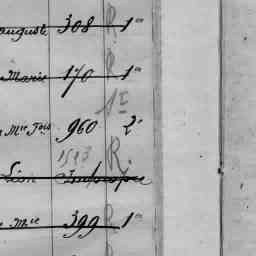 auguste 308 R. 1re
Marie 170 R. 1re
1E
Mie Fois 960 2e
1513 R.
Léon Impropre
Mie 399 R. 1re